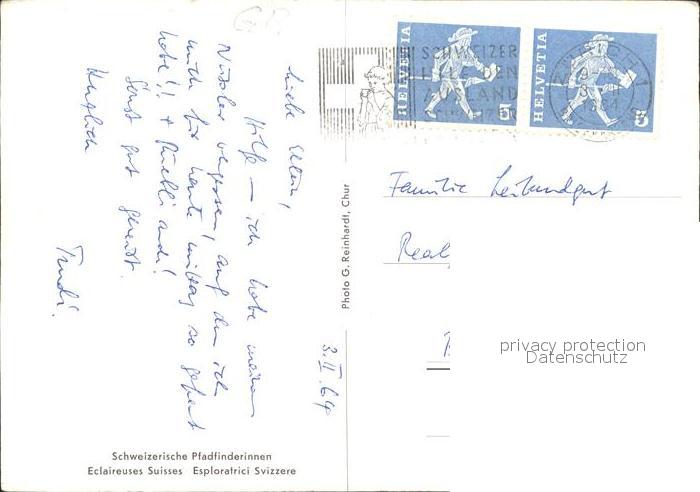 3.II.64
Liebe Eltern,
Hilfe – ich habe meinen
Nüssler vergessen, auf den ich
mich für heute mittag so gefreut
habe!! + Rüebli auch!
Sonst gut gereist.
Herzlich
Trudi.
Schweizerische Pfadfinderinnen
Eclaireuses Suisses Esploratrici Svizzere
Photo G. Reinhardt, Chur
SCHWEIZER
AUSLAND
HELVETIA 5
HELVETIA 5
ZÜRICH 1
Familie Leibundgut
Real
privacy protection
Datenschutz